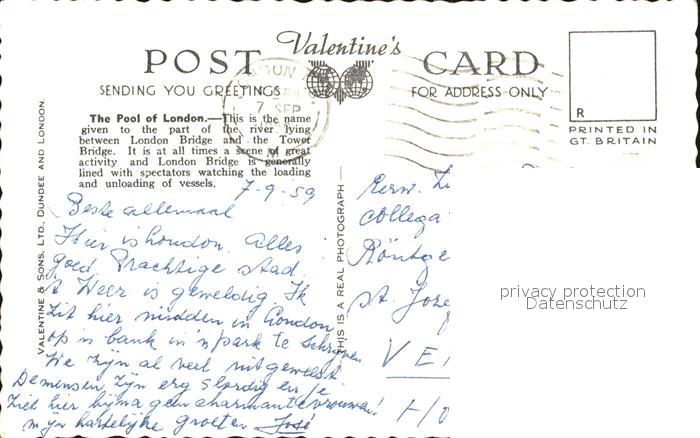 Valentine's
POST CARD
SENDING YOU GREETINGS
FOR ADDRESS ONLY
R
PRINTED IN
GT. BRITAIN
7 SEP
The Pool of London.—This is the name
given to the part of the river lying
between London Bridge and the Tower
Bridge. It is at all times a scene of great
activity and London Bridge is generally
lined with spectators watching the loading
and unloading of vessels.
VALENTINE & SONS, LTD., DUNDEE AND LONDON.
THIS IS A REAL PHOTOGRAPH
7-9-59
Beste allemaal
Hier is London. Alles
goed. Prachtige stad.
't Weer is geweldig. Ik
zit hier midden in London
op 'n bank in 'n park te schrijven
We zijn al veel uitgeweest
De mensen zijn erg slordig en je
ziet hier bijna geen charmante vrouwen!
mijn hartelijke groeten José
Eerw.
collega
Röntge
St. Joze
VE
HO
privacy protection
Datenschutz